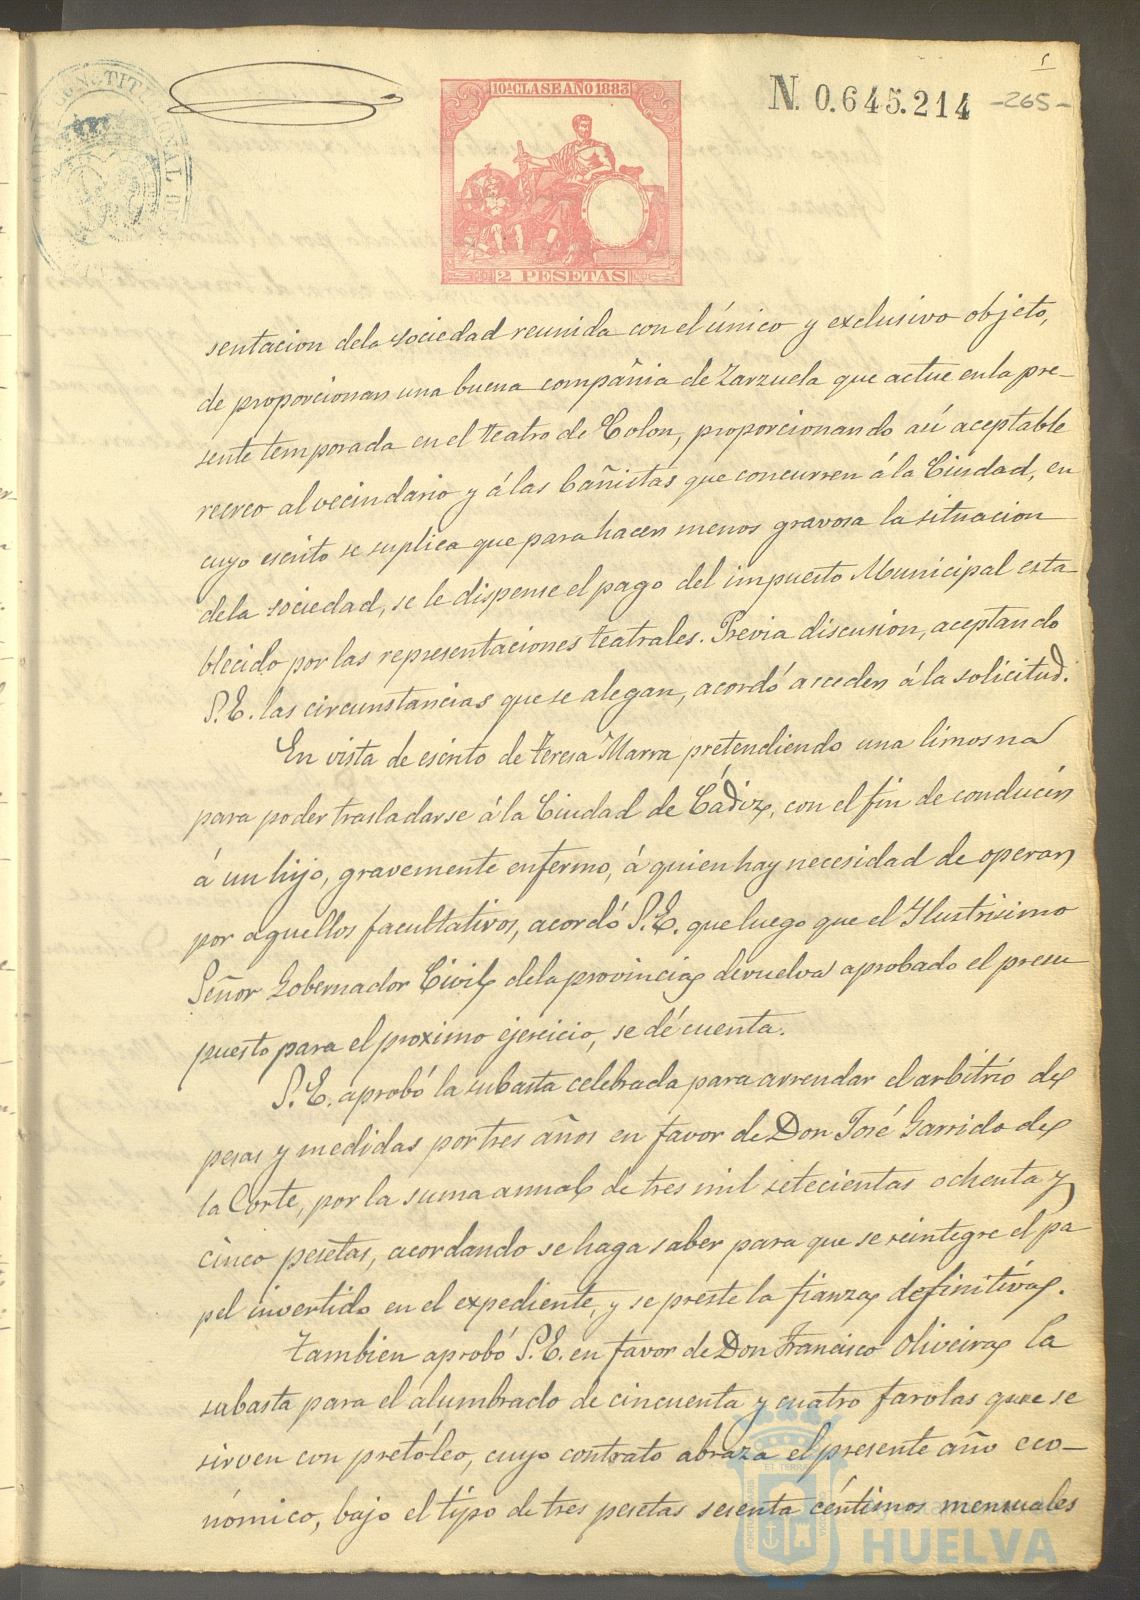 5
10ª CLASE AÑO 1883
N. 0.645.214
-265-
CONSTITUCIONAL DE
2 PESETAS
sentacion dela sociedad reunida con el único y exclusivo objeto,
de proporcionar una buena compañia de Zarzuela que actue en la pre-
sente temporada en el teatro de Colon, proporcionando asi aceptable
recreo al vecindario y á las bañistas que concurren á la Ciudad, en
cuyo escrito se suplica que para hacer menos gravosa la situacion
dela sociedad, se le dispense el pago del impuesto Municipal esta-
blecido por las representaciones teatrales. Previa discusion, aceptando
S.E. las circunstancias que se alegan, acordó acceder á la solicitud.
En vista de escrito de Teresa Marra pretendiendo una limosna
para poder trasladarse á la Ciudad de Cádiz, con el fin de conducir
á un hijo, gravemente enfermo, á quien hay necesidad de operar
por aquellos facultativos, acordó S.E. que luego que el Ilustrisimo
Señor Gobernador Civil dela provincia devuelva aprobado el presu
puesto para el proximo ejercicio, se dé cuenta.
S.E. aprobó la subasta celebrada para arrendar el arbitrio de
pesas y medidas por tres años en favor de Don José Garrido de
la Corte, por la suma annal de tres mil setecientas ochenta y
cinco pesetas, acordando se haga saber para que se reintegre el pa
pel invertido en el expediente, y se preste la fianza definitiva.
Tambien aprobó S.E. en favor de Don Francisco Oliveira la
subasta para el alumbrado de cincuenta y cuatro farolas que se
sirven con pretóleo, cuyo contrato abraza el presente año eco-
nómico, bajo el tipo de tres pesetas sesenta céntimos mensuales
Ayuntamiento de
HUELVA